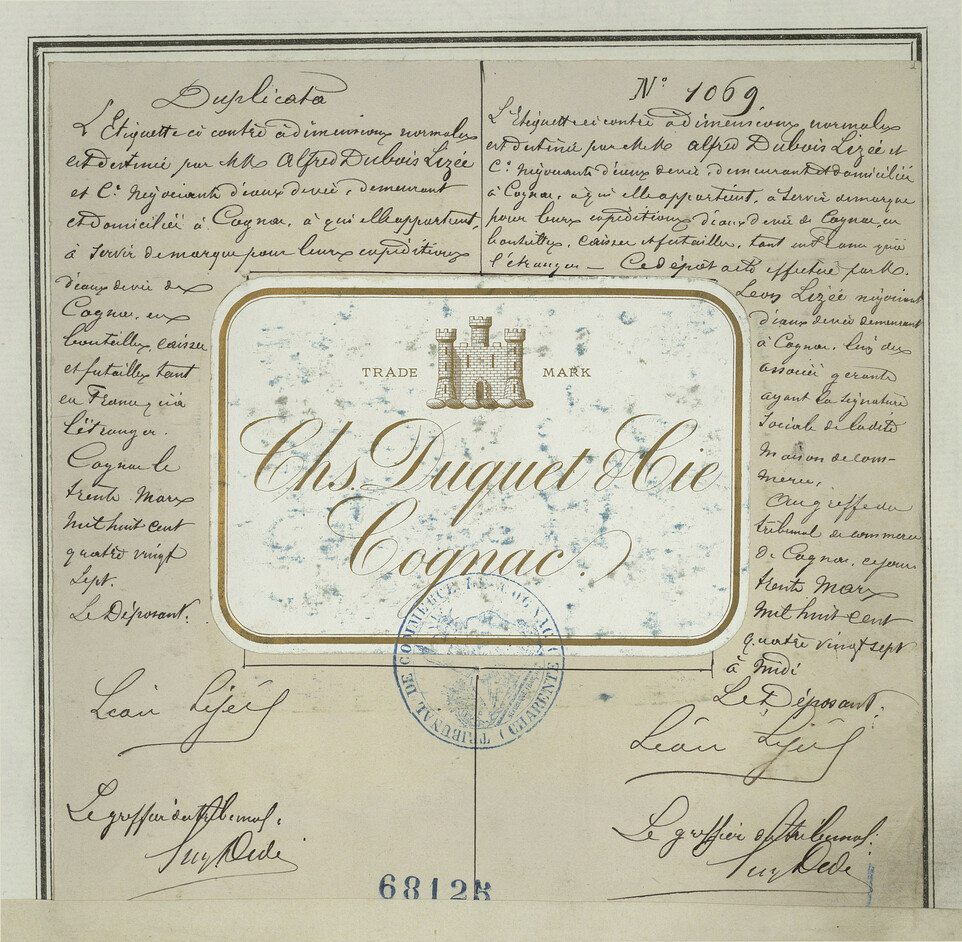 Duplicata
L'Etiquette ci contre à dimensions normales
est destinée par MM Alfred Dubois Lizée
et Cie Négociants d'eaux de vie, demeurant
et domiciliés à Cognac, à qui elle appartient,
à servir de marque pour leurs expéditions
d'eaux de vie de
Cognac, en
bouteilles, caisses
et futailles tant
en France qu'à
l'étranger.
Cognac le
trente Mars
mil huit cent
quatre vingt
sept.
Le Déposant.
Léon Lizée
Le greffier du tribunal.
No 1069
L'Etiquette ci contre à dimensions normales
est destinée par M.M. Alfred Dubois Lizée et
Cie Négociants d'eaux de vie, demeurant et domiciliés
à Cognac, à qui elle appartient, à servir de marque
pour leurs expéditions d'eaux de vie de Cognac, en
bouteilles, caisses et futailles, tant en France qu'à
l'étranger — Ce dépôt a été effectué par M.
Léon Lizée négociant
d'eaux de vie demeurant
à Cognac. l'un des
associés gérants
ayant la signature
sociale de ladite
maison de com-
merce,
Au greffe du
tribunal de commerce
de Cognac, ce jour
trente Mars
mil huit cent
quatre vingt sept
à midi
Le Déposant.
Léon Lizée
Le greffier du tribunal.
TRADE MARK
Chs. Duquet & Cie
Cognac.
TRIBUNAL DE COMMERCE DE COGNAC (CHARENTE)
68125